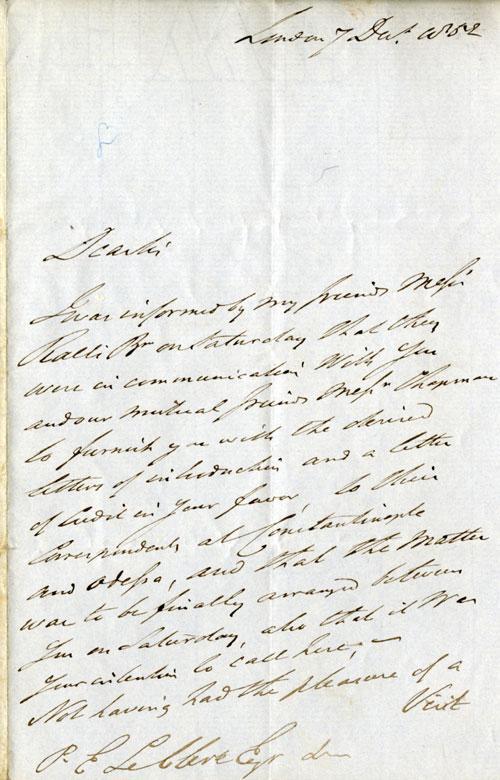 London 7 Decr. 1852
Dear Sir
I was informed by my friends Messrs
Ralli Brs on Saturday that they
were in communication with you
and our mutual friends Messrs Chapman
to furnish you with the desired
letters of introduction and a letter
of Credit in your favor, to their
Correspondents at Constantinople
and Odessa, and that the Matter
was to be finally arranged between
you on Saturday, also that it was
your intention to call here, —
Not having had the pleasure of a
Visit
P. E. Le Clerc Esqr